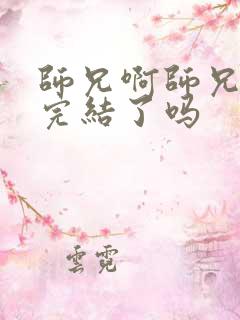 師兄啊師兄
完結了吗
雲霓